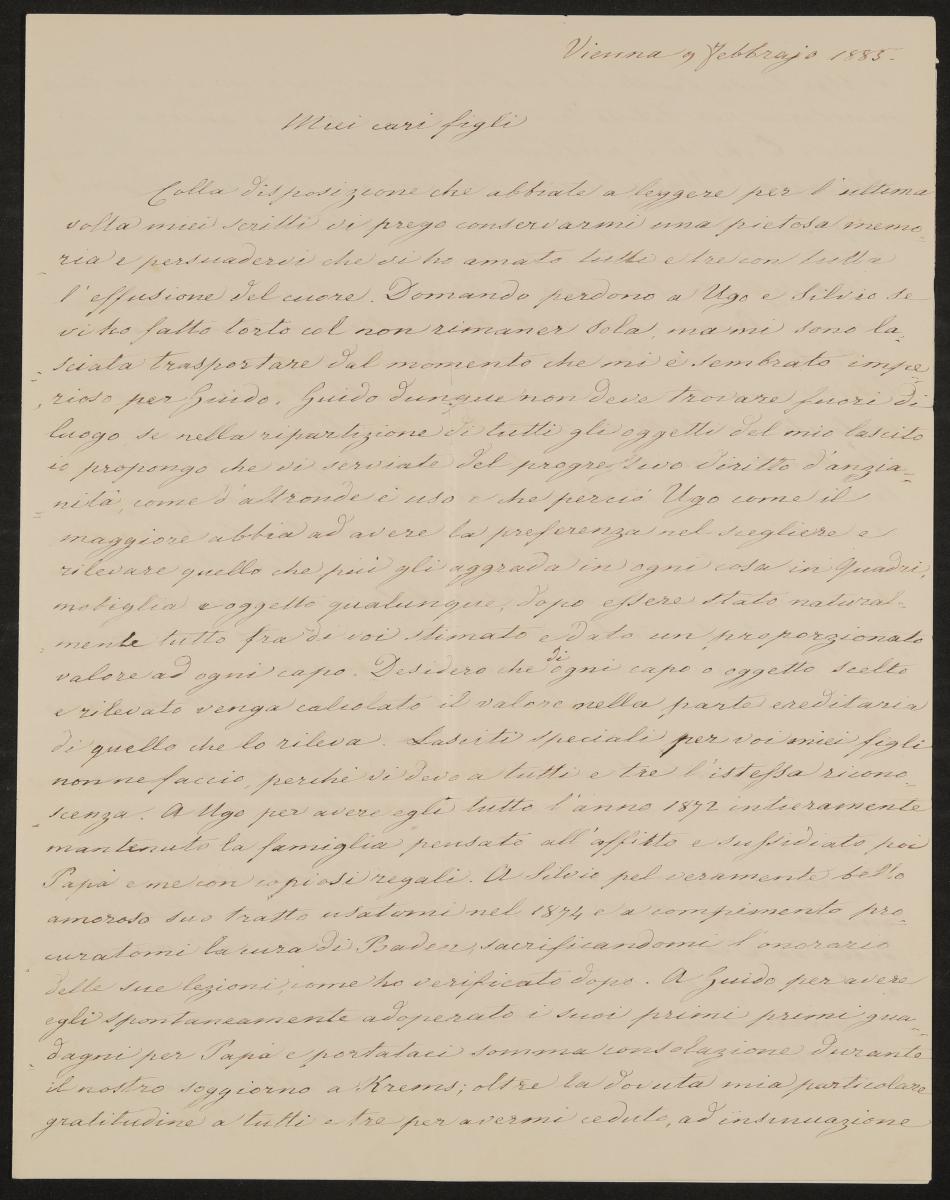 Vienna 9 Febbrajo 1885.
Miei cari figli
Colla disposizione che abbiate a leggere per l'ultima
volta miei scritti vi prego conservarmi una pietosa memo=
=ria e persuadervi che vi ho amato tutti e tre con tutta
l'effusione del cuore. Domando perdono a Ugo e Silvio se
vi ho fatto torto col non rimaner sola, ma mi sono la=
=sciata trasportare dal momento che mi è sembrato impe=
=rioso per Guido. Guido dunque non deve trovare fuori di
luogo se nella ripartizione di tutti gli oggetti del mio lascito
io propongo che vi serviate del progressivo diritto d'anzia=
=nità, come d'altronde è uso e che perciò Ugo come il
maggiore abbia ad avere la preferenza nel scegliere e
rilevare quello che più gli aggrada in ogni cosa in Quadri,
mobiglia e oggetto qualunque, dopo essere stato natural=
=mente tutto fra di voi stimato e dato un proporzionato
valore ad ogni capo. Desidero che di ogni capo o oggetto scelto
e rilevato venga calcolato il valore nella parte ereditaria
di quello che lo rileva. Lasciti speciali per voi miei figli
non ne faccio, perché vi devo a tutti e tre l'istessa ricono=
=scenza. A Ugo per avere egli tutto l'anno 1872 intieramente
mantenuto la famiglia pensato all'affitto e sussidiato poi
Papà e me con copiosi regali. A Silvio pel veramente bello
amoroso suo tratto usatomi nel 1874 e a compimento pro=
curatomi la cura di Baden, sacrificandomi l'onorario
delle sue lezioni, come ho verificato dopo. A Guido per avere
egli spontaneamente adoperato i suoi primi primi gua=
=dagni per Papà e portataci somma consolazione durante
il nostro soggiorno a Krems; oltre la dovuta mia particolare
gratitudine a tutti e tre per avermi cedute, ad insinuazione